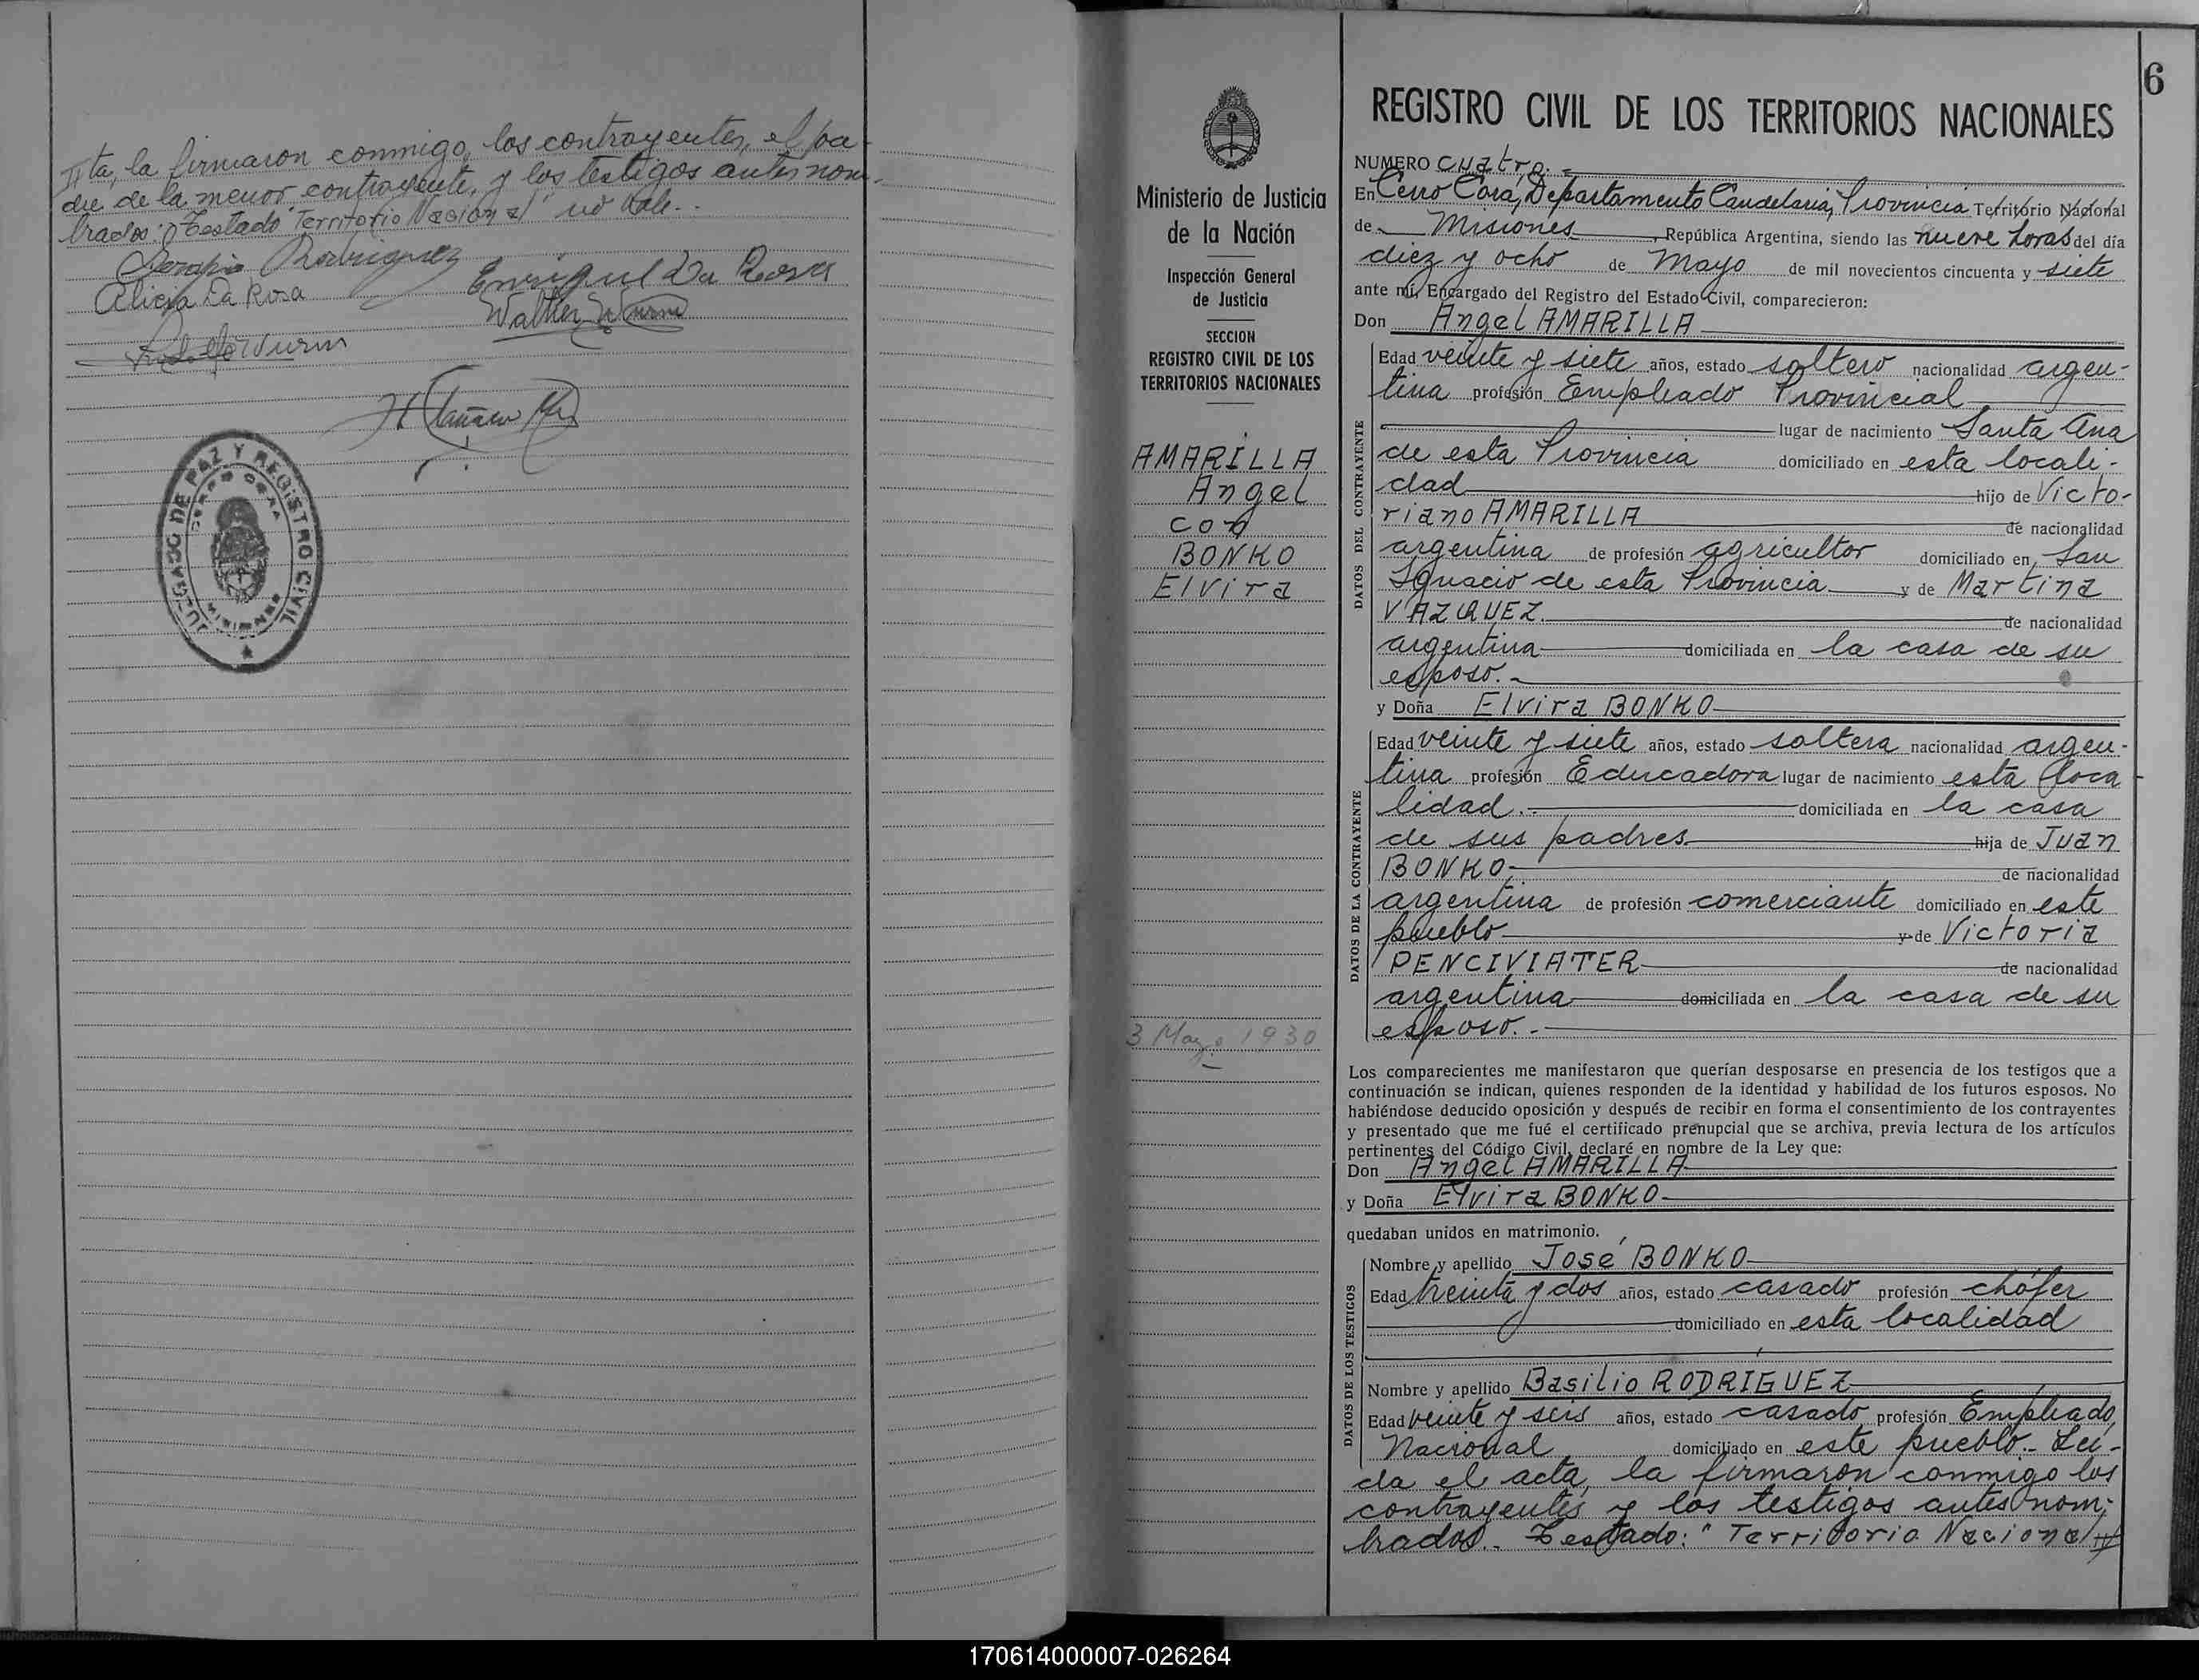 ta, la firmaron conmigo, los contrayentes, el pa-
dre de la menor contrayente, y los testigos antes nom-
brados: Testado "Territorio Nacional" no vale.-
Serapio Rodriguez
Enrique Da Rosa
Alicia Da Rosa
Walther Wurm
Rodolfo Wurm
JUZGADO DE PAZ Y REGISTRO CIVIL
CERRO CORA
MISIONES
6
Ministerio de Justicia
de la Nación
Inspección General
de Justicia
SECCION
REGISTRO CIVIL DE LOS
TERRITORIOS NACIONALES
AMARILLA
Angel
con
BONKO
Elvira
3 Mayo 1930
REGISTRO CIVIL DE LOS TERRITORIOS NACIONALES
NUMERO cuatro.-
En Cerro Corá, Departamento Candelaria, Provincia Territorio Nacional
de Misiones, República Argentina, siendo las nueve horas del día
diez y ocho de Mayo de mil novecientos cincuenta y siete
ante mí, Encargado del Registro del Estado Civil, comparecieron:
Don Angel AMARILLA
DATOS DEL CONTRAYENTE
Edad veinte y siete años, estado soltero nacionalidad argen-
tina profesión Empleado Provincial
lugar de nacimiento Santa Ana
de esta Provincia domiciliado en esta locali-
dad hijo de Victo-
riano AMARILLA de nacionalidad
argentina de profesión agricultor domiciliado en San
Ignacio de esta Provincia y de Martina
VAZQUEZ. de nacionalidad
argentina domiciliada en la casa de su
esposo.-
y Doña Elvira BONKO
DATOS DE LA CONTRAYENTE
Edad veinte y siete años, estado soltera nacionalidad argen-
tina profesión Educadora lugar de nacimiento esta loca
lidad.- domiciliada en la casa
de sus padres hija de Juan
BONKO, de nacionalidad
argentina de profesión comerciante domiciliado en este
pueblo y de Victoria
PENCIVIATER de nacionalidad
argentina domiciliada en la casa de su
esposo.-
Los comparecientes me manifestaron que querían desposarse en presencia de los testigos que a
continuación se indican, quienes responden de la identidad y habilidad de los futuros esposos. No
habiéndose deducido oposición y después de recibir en forma el consentimiento de los contrayentes
y presentado que me fué el certificado prenupcial que se archiva, previa lectura de los artículos
pertinentes del Código Civil, declaré en nombre de la Ley que:
Don Angel AMARILLA
y Doña Elvira BONKO
quedaban unidos en matrimonio.
DATOS DE LOS TESTIGOS
Nombre y apellido José BONKO
Edad treinta y dos años, estado casado profesión chófer
domiciliado en esta localidad
Nombre y apellido Basilio RODRIGUEZ
Edad veinte y seis años, estado casado profesión Empleado
Nacional domiciliado en este pueblo.- Lei-
da el acta, la firmaron conmigo los
contrayentes y los testigos antes nom-
brados.- Testado: "Territorio Nacional
170614000007-026264